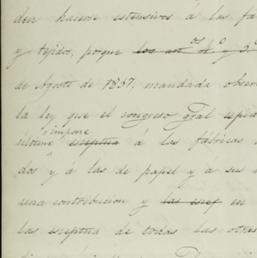 den hacerse estensivos á las fá
y tejidos, porque los art.os 1.o y 2.o
de Agosto de 1837, mandada obser
la ley que el congreso gral espid
impone
exeptua á las fábricas
dos y á las de papel y a sus
una contribucion y las exep
las exeptua de todas las otra